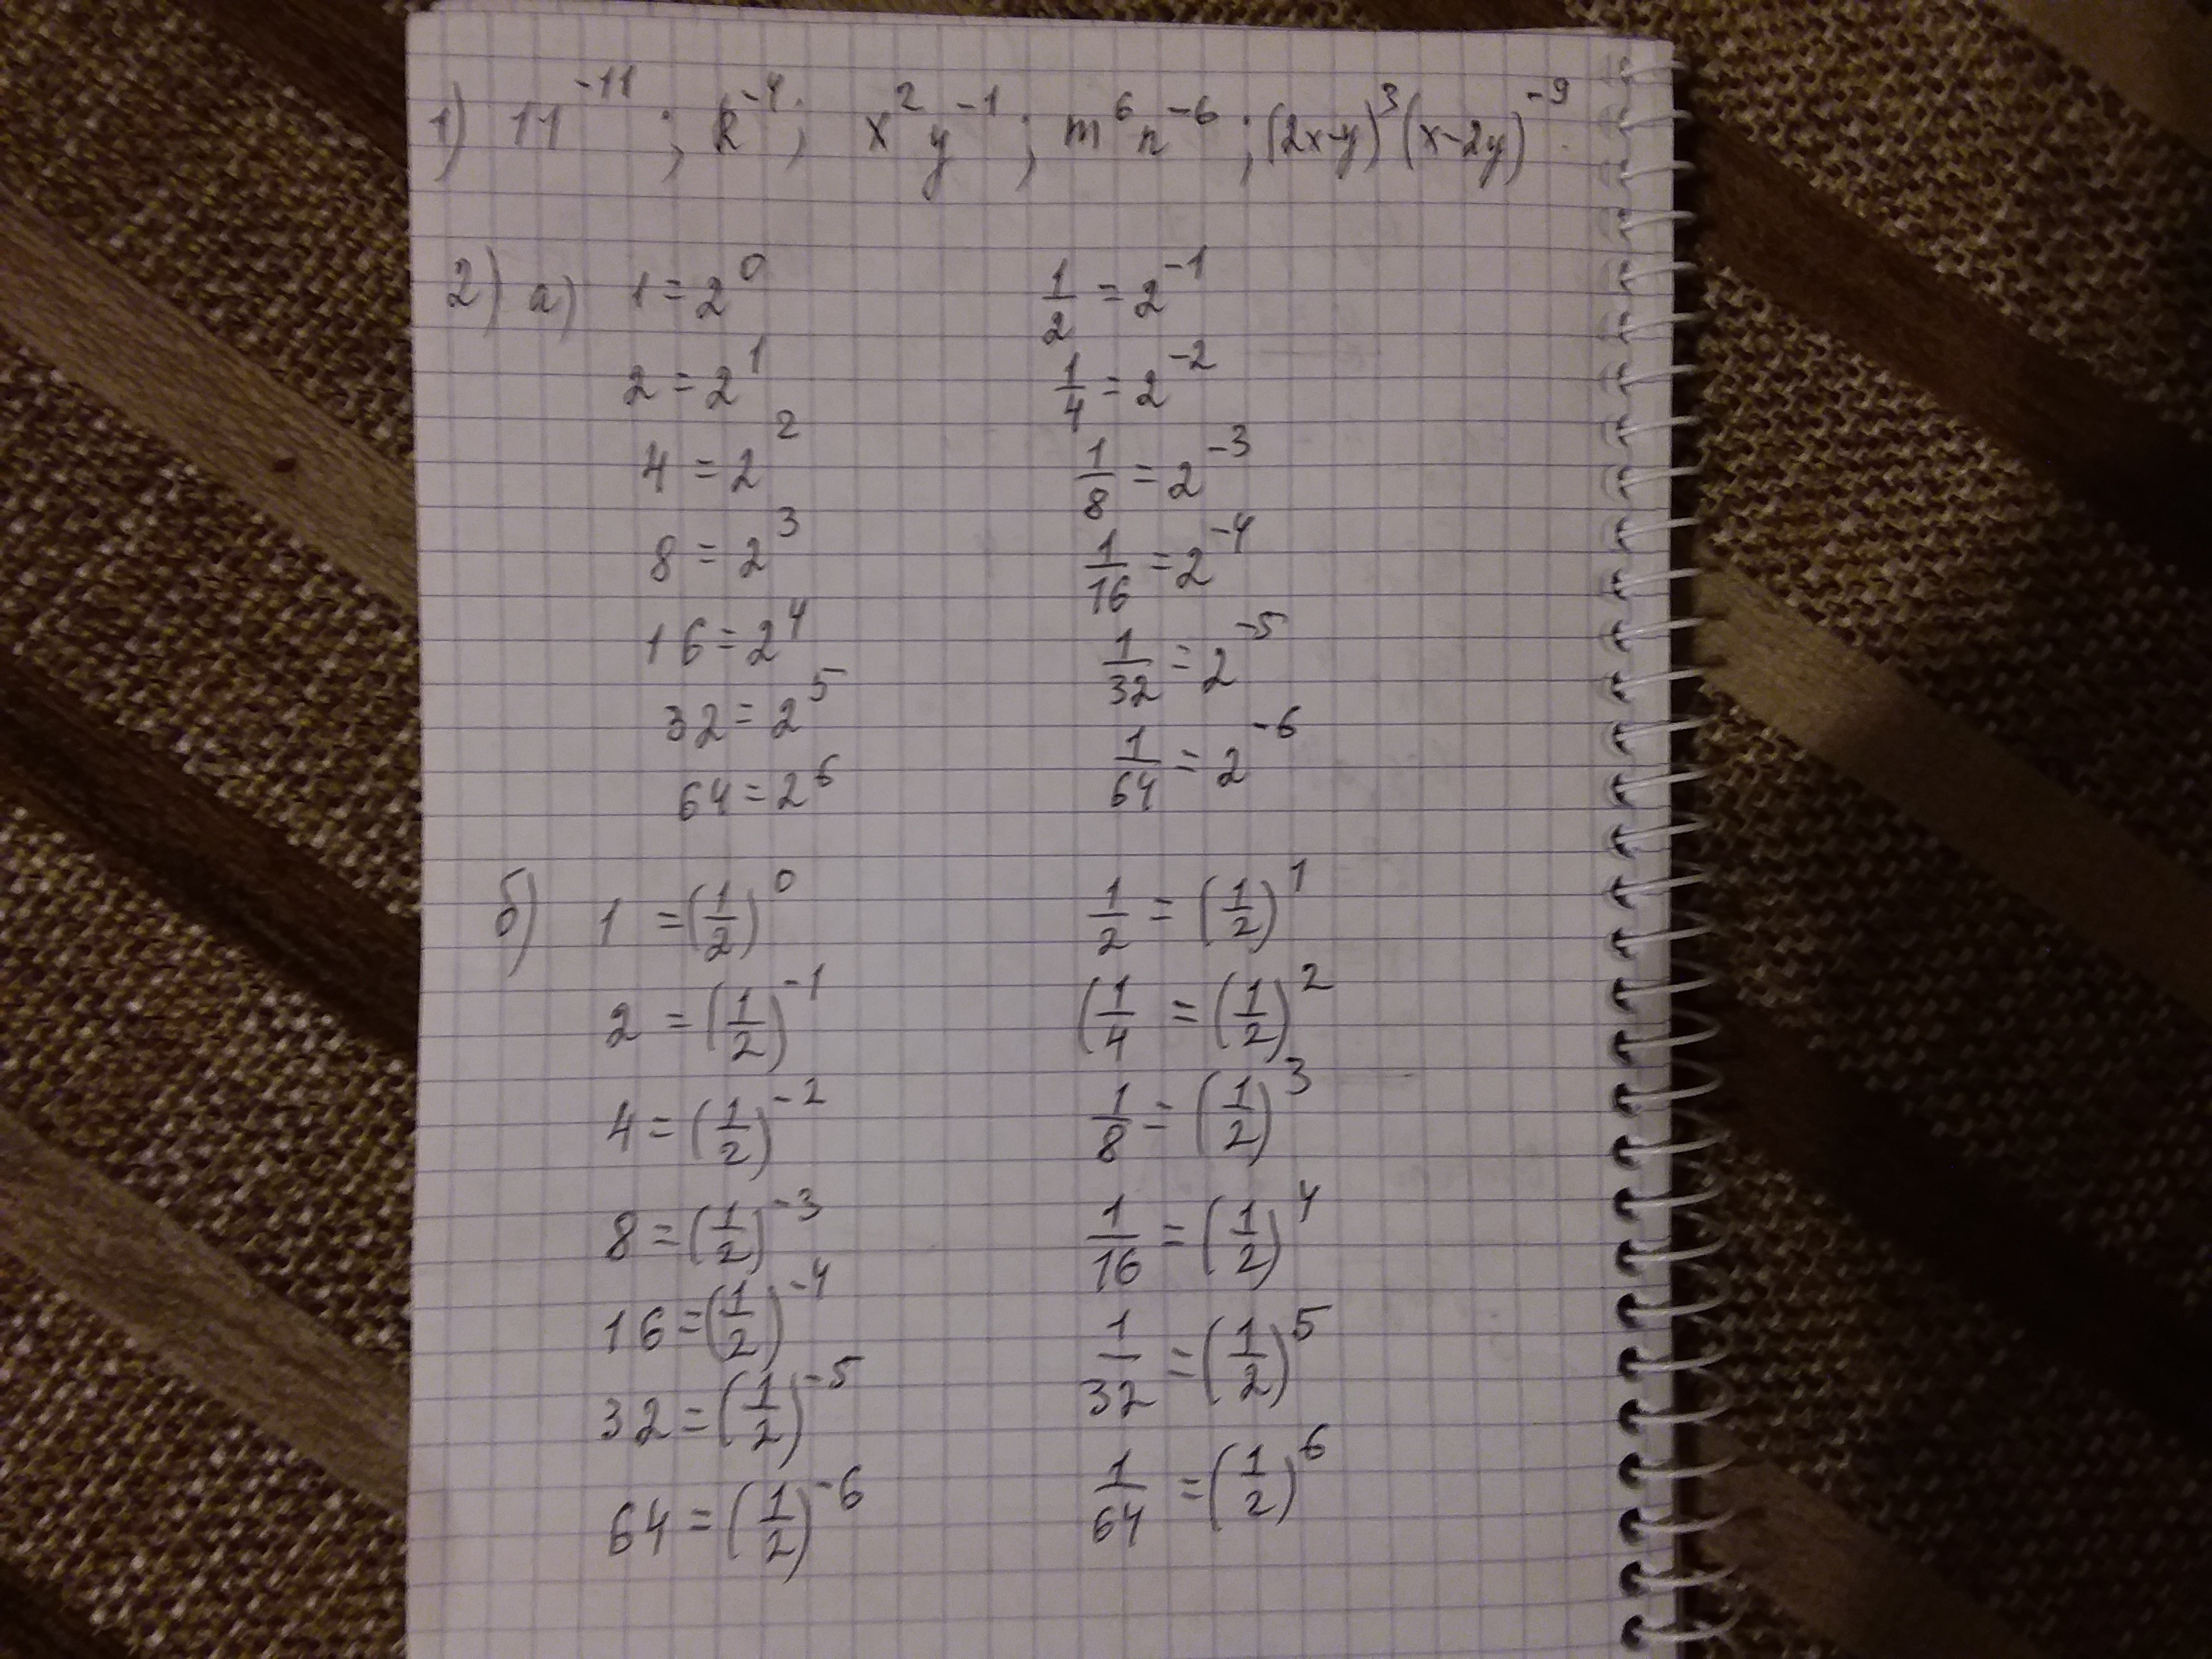 1) 11^-11 ; k^-4 ; x^2 y^-1 ; m^6 n^-6 ; (2x-y)^3 (x-2y)^-9 .
2) а) 1 = 2^0     1/2 = 2^-1
2 = 2^1     1/4 = 2^-2
4 = 2^2     1/8 = 2^-3
8 = 2^3     1/16 = 2^-4
16 = 2^4     1/32 = 2^-5
32 = 2^5     1/64 = 2^-6
64 = 2^6
б) 1 = (1/2)^0     1/2 = (1/2)^1
2 = (1/2)^-1     (1/4 = (1/2)^2
4 = (1/2)^-2     1/8 = (1/2)^3
8 = (1/2)^-3     1/16 = (1/2)^4
16 = (1/2)^-4     1/32 = (1/2)^5
32 = (1/2)^-5     1/64 = (1/2)^6
64 = (1/2)^-6